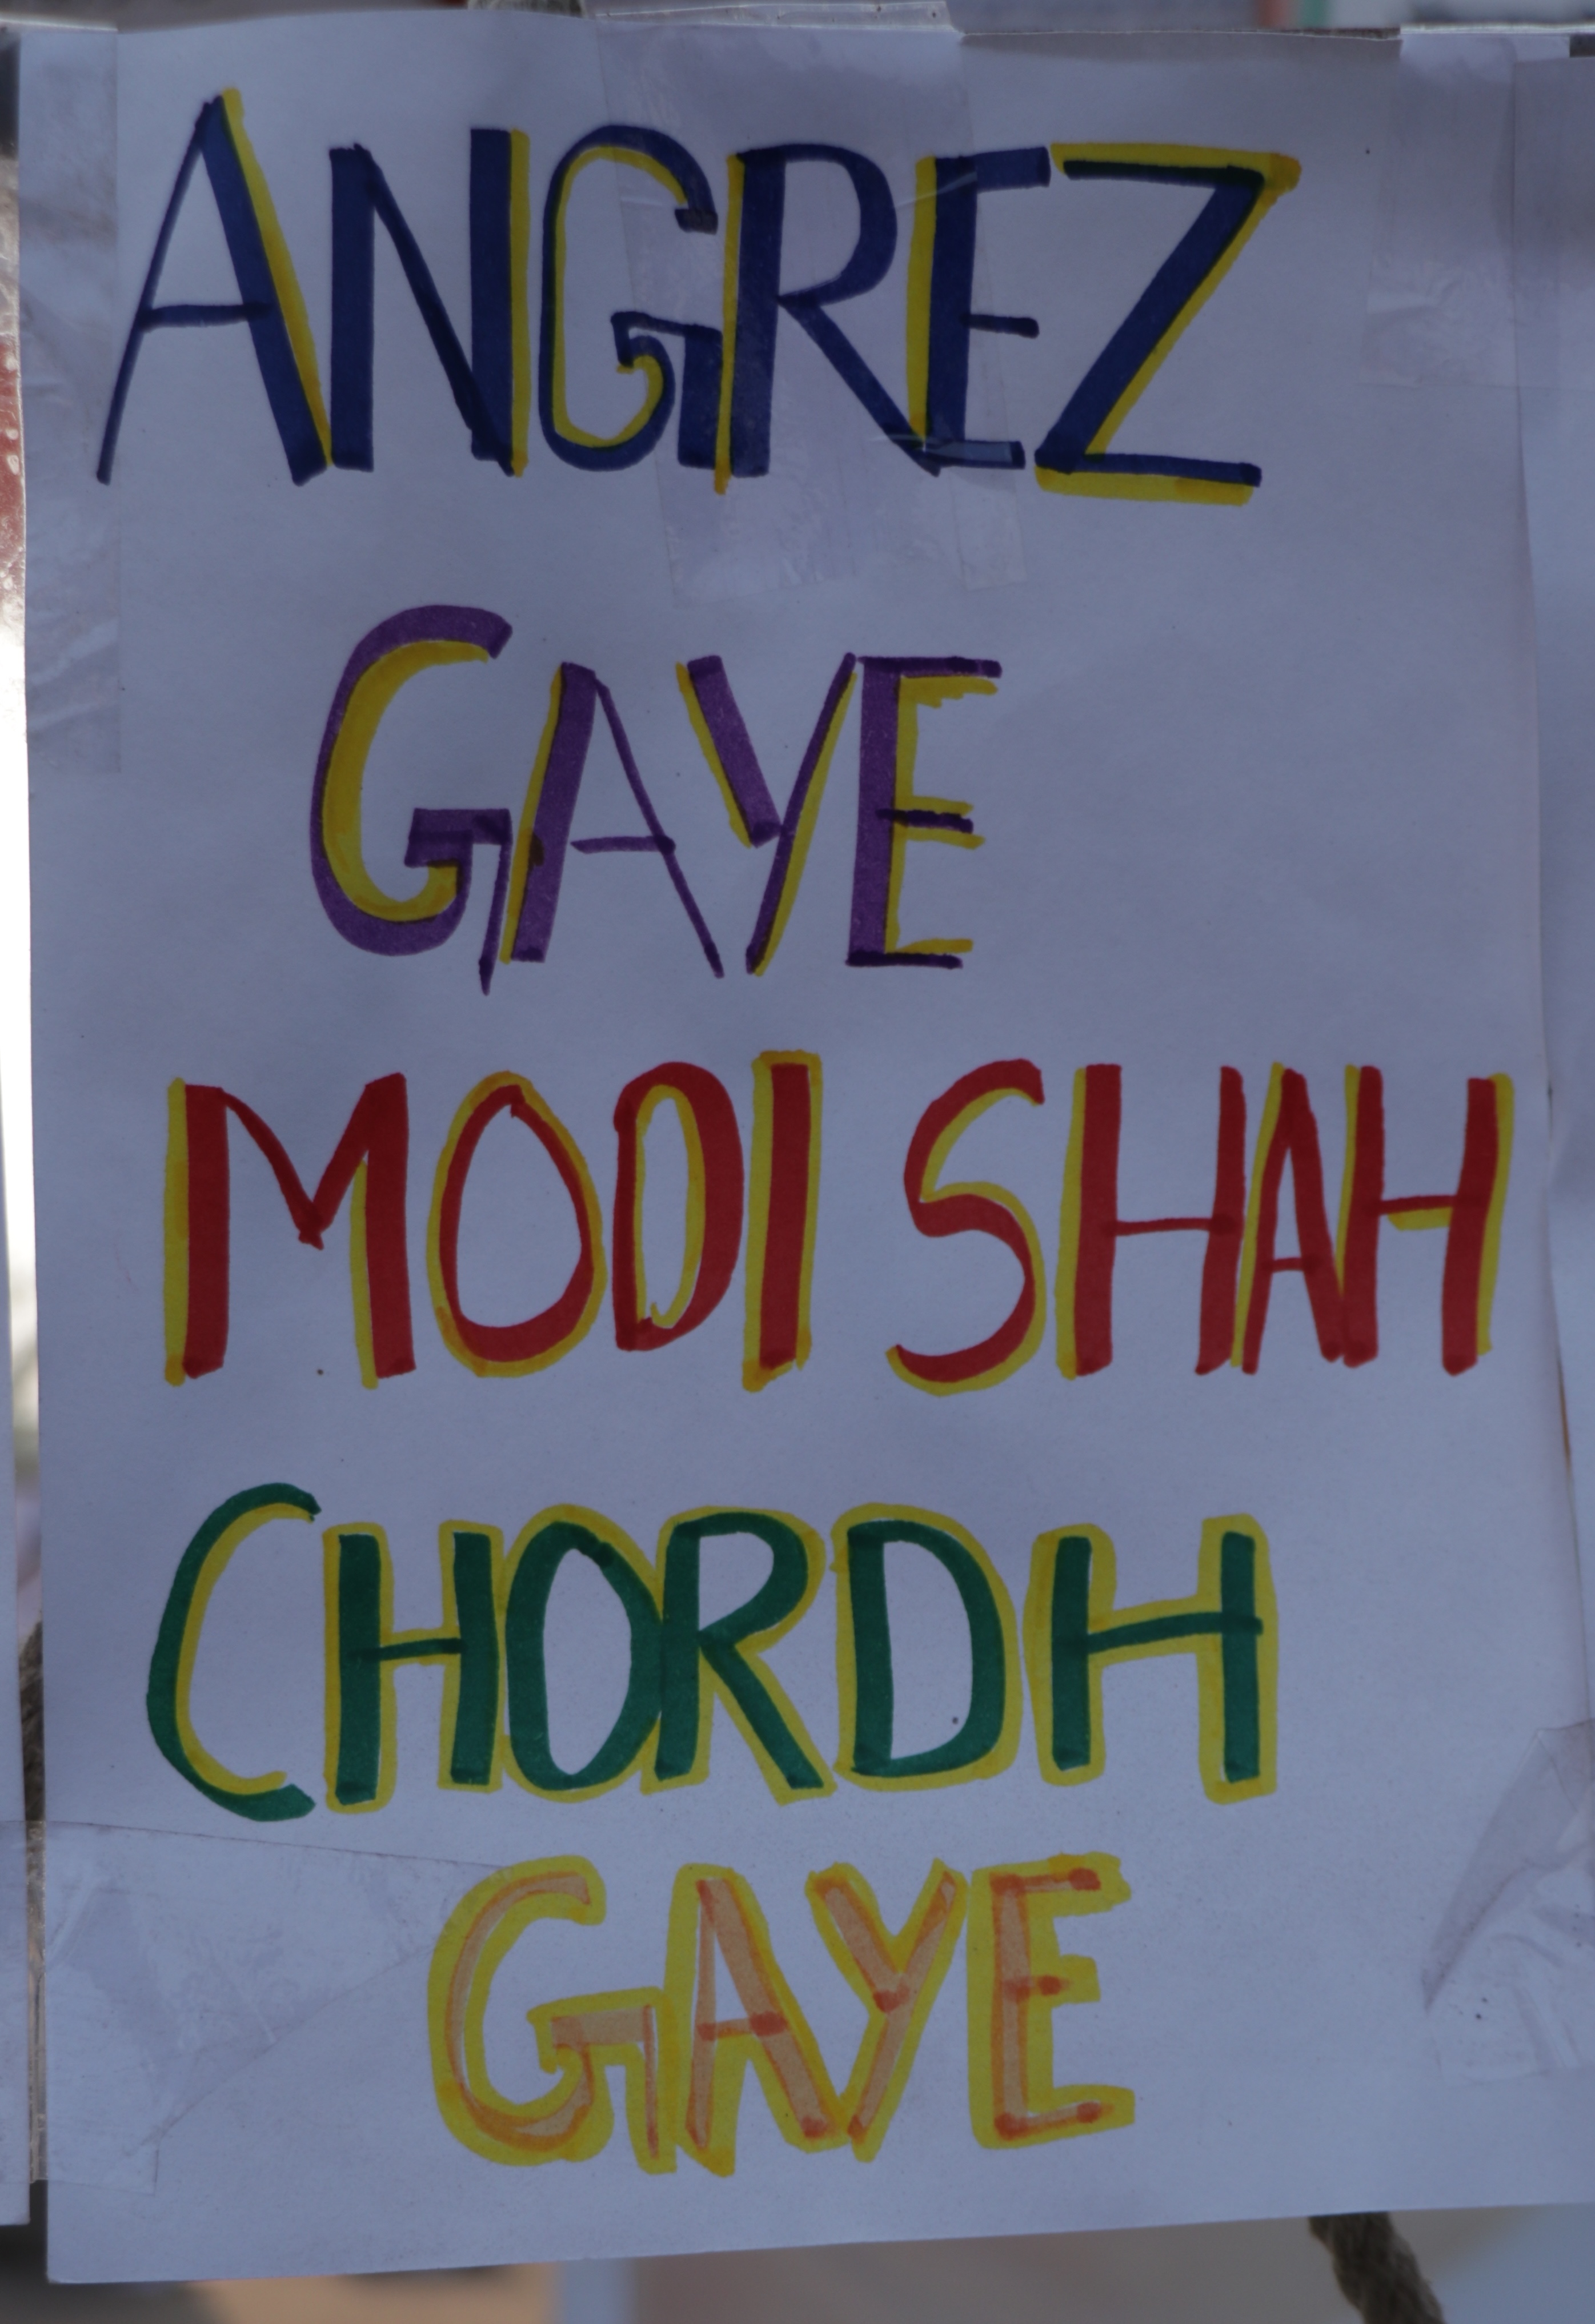 ANGREZ
GAYE
MODI SHAH
CHORDH
GAYE